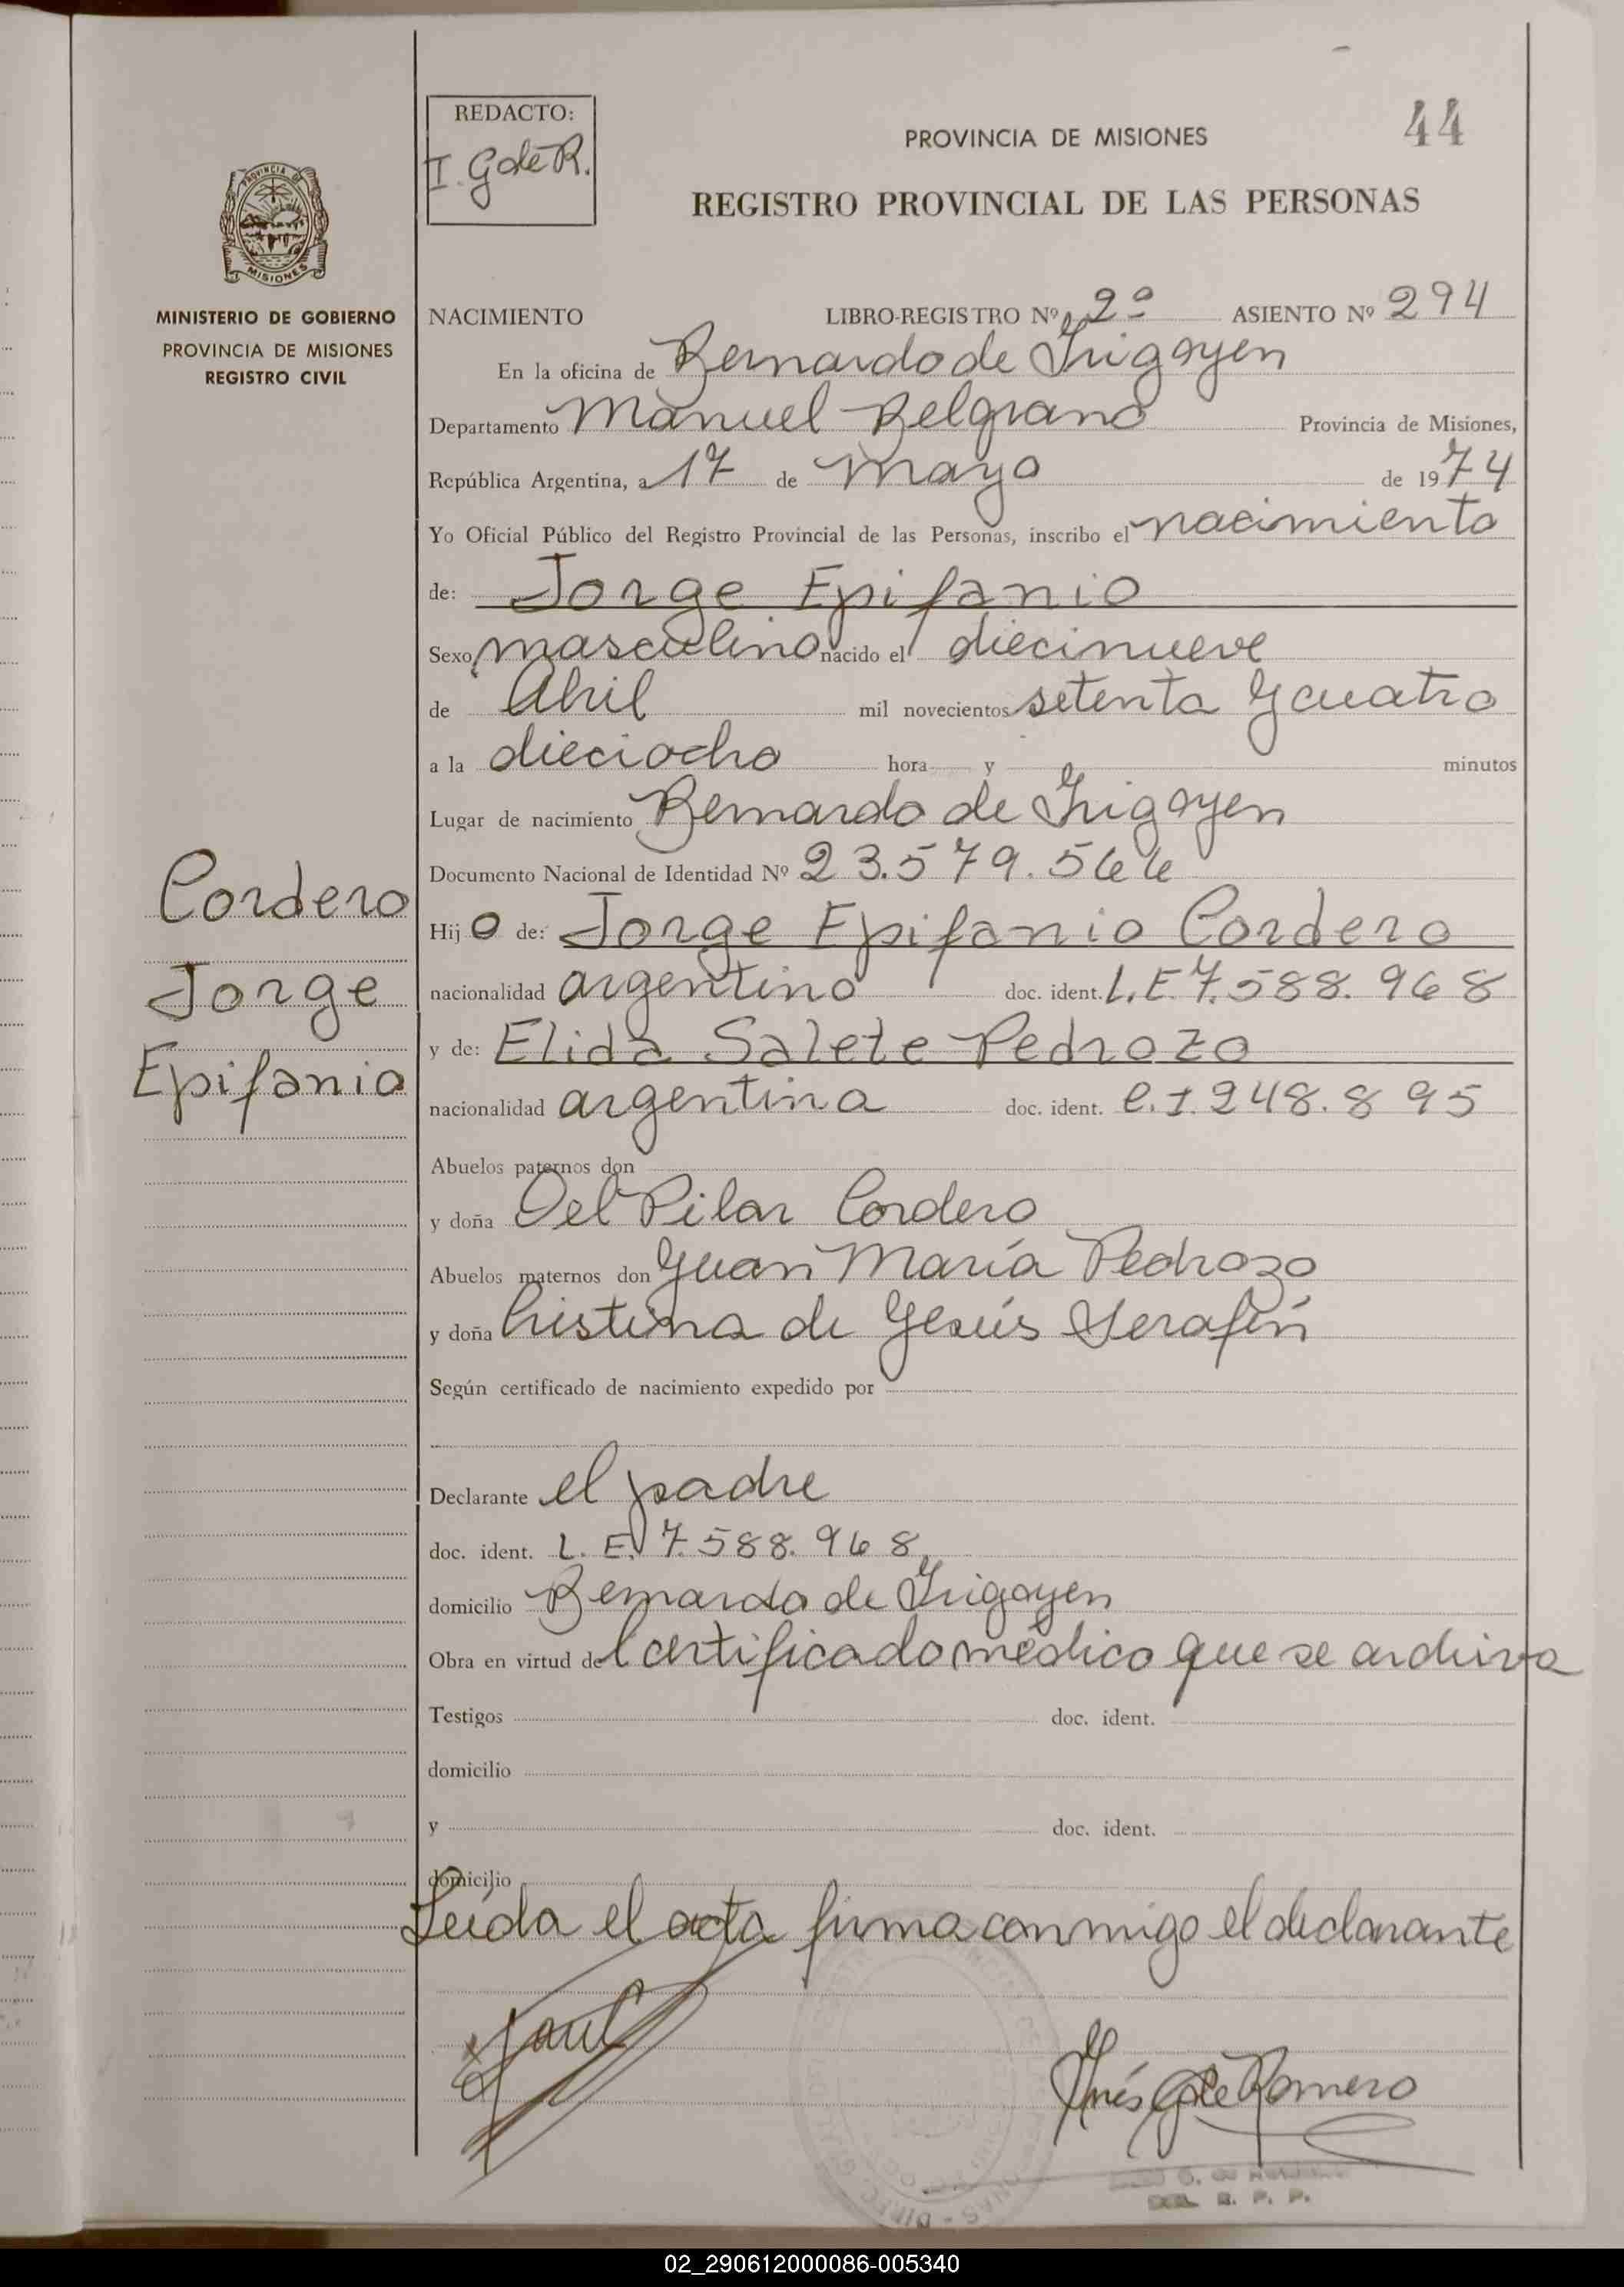 REDACTO:
I. G de R.
PROVINCIA DE MISIONES
44
REGISTRO PROVINCIAL DE LAS PERSONAS
PROVINCIA DE
MISIONES
MINISTERIO DE GOBIERNO
PROVINCIA DE MISIONES
REGISTRO CIVIL
NACIMIENTO LIBRO-REGISTRO Nº 2º ASIENTO Nº 294
En la oficina de Bernardo de Irigoyen
Departamento Manuel Belgrano Provincia de Misiones,
República Argentina, a 17 de Mayo de 1974
Yo Oficial Público del Registro Provincial de las Personas, inscribo el nacimiento
de: Jorge Epifanio
Sexo masculino nacido el diecinueve
de Abril mil novecientos setenta y cuatro
a la dieciocho hora y minutos
Lugar de nacimiento Bernardo de Irigoyen
Documento Nacional de Identidad Nº 23.579.566
Cordero
Jorge
Epifanio
Hijo de: Jorge Epifanio Cordero
nacionalidad argentino doc. ident. L.E. 7.588.968
y de: Elida Salete Pedrozo
nacionalidad argentina doc. ident. C.I. 248.895
Abuelos paternos don
y doña Del Pilar Cordero
Abuelos maternos don Juan María Pedrozo
y doña Cristina de Jesús Serafín
Según certificado de nacimiento expedido por
Declarante el padre
doc. ident. L.E. 7.588.968
domicilio Bernardo de Irigoyen
Obra en virtud del certificado médico que se archiva
Testigos doc. ident.
domicilio
y doc. ident.
domicilio
Leída el acta firma conmigo el declarante
Inés G de Romero
R. P. P.
02_290612000086-005340